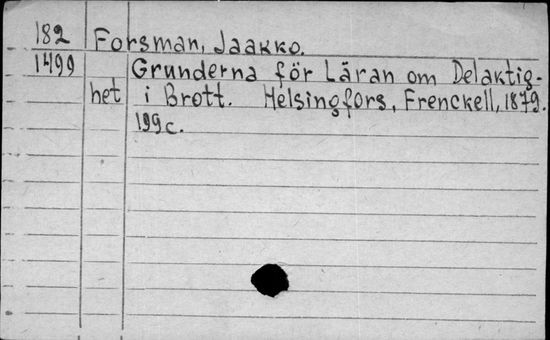 182 Forsman, Jaakko.
1499 Grunderna för Läran om Delaktig-
het i Brott. Helsingfors, Frenckell, 1879.
199 c.